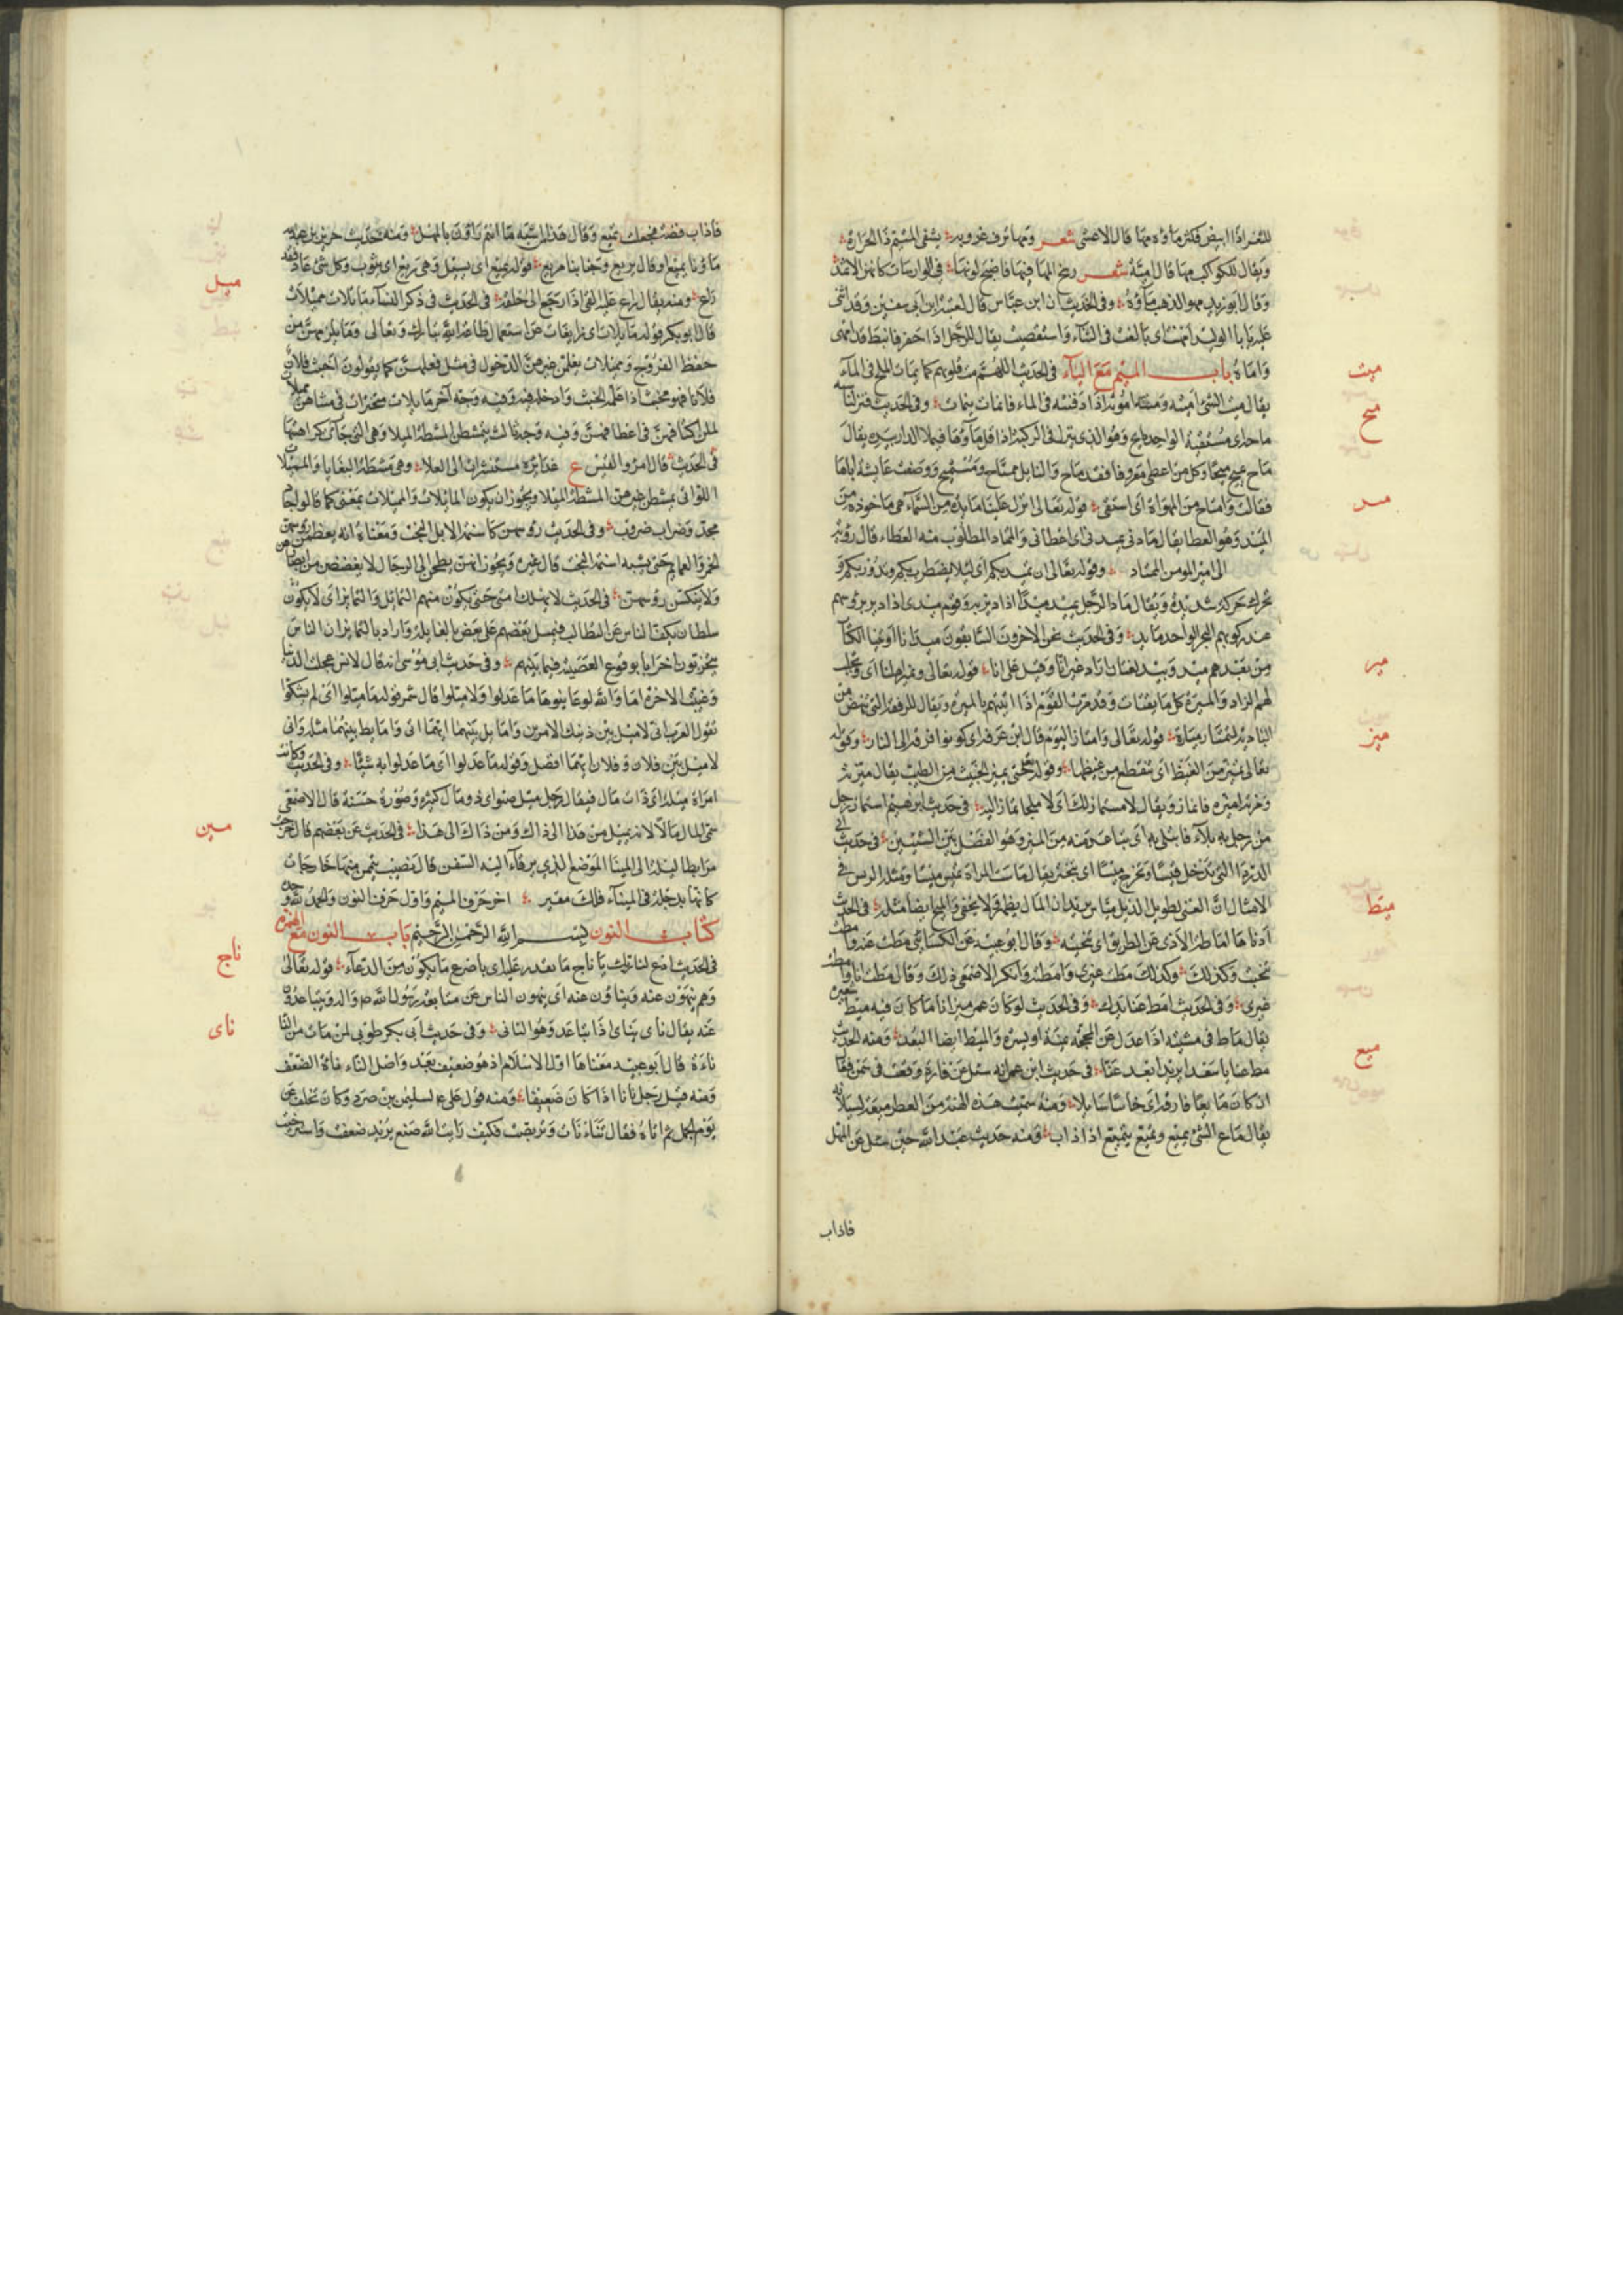 للثغر اذا ابيض وكثر ماؤه مها قال الاعشى شعر ومها ترف غروبه يشفى المتيم ذا الحراره
ويقال للكواكب مها قال امية شعر رسخ المها فيها فاصبح لونها فى الوارسات كانهن الاثمد
وقال ابو زيد مهو الذهب ماؤه وفى الحديث ان ابن عباس قال لعتبة ابن ابى سفين وقد اثنى
عليه يا ابا الوليد امهيت اى بالغت فى الثناء واستقصيت يقال للرجل اذا حفر فانبط قد امهى
واماه باب الميم مع الياء فى الحديث اللهم مث قلوبهم كما يماث الملح فى الماء
يقال مثت الشئ اميثه ومثته اموثه اذا دفته فى الماء فانماث ينماث وفى الحديث فنزلنا
ماحة اى مستقية الواحد مايح وهو الذى ينزل فى الركية اذا قل ماؤها فيملا الدلو بيده يقال
ماح يميح ميحا وكل من اعطى معروفا فقد ماح والنايل ممتاح ومستميح ووصفت عايشة اباها
فقالت وامتاح من المهواة اى استقى قوله تعالى انزل علينا مايدة من السماء هى ماخوذة من
الميد وهو العطا يقال مادنى يميدنى اى اعطانى والممتاد المطلوب منه العطاء قال رؤبة
الى امير المومنين الممتاد وقوله تعالى ان تميد بكم اى ليلا يضطرب بكم ويدور بكم و
تحرك حركة شديدة ويقال ماد الرجل يميد ميدا اذا دير به وقوم ميدى اذا دير بروسهم
عند ركوبهم البحر الواحد مايد وفى الحديث نحن الاخرون السابقون ميدانا اوتينا الكتاب
من بعدهم ميد وبيد لغتان اراد غير انا وقيل على انا قوله تعالى ونمير اهلنا اى نجلب
لهم الزاد والميرة كل ما يقتات وقد مرت القوم اذا اتيتهم بالميرة ويقال للرفقة التى تنهض من
البادية لتمتار ميارة قوله تعالى وامتازوا اليوم قال ابن عرفة اى كونوا فرقة الى النار وقوله
تعالى تميز من الغيظ اى تنقطع من غيظها وقوله حتى يميز الخبيث من الطيب يقال ميزته
ومزته اميزه فانماز ويقال لا مستماز لك اى لا ملجا تماز اليه فى حديث ابرهيم استماز رجل
من رجل به بلاء فابتلى به اى تباعد منه من الميز وهو الفصل بين الشيئين فى حديث ابى
الدرداء التى تدخل قيسا وتخرج ميسا اى تتبختر يقال ماست المراة تميس ميسا ومثله الريس فى
الامثال ان الغنى طويل الذيل مياس يريد ان المال يظهر فلا يخفى والميح ايضا مثله فى الحديث
ادناها اماطة الاذى عن الطريق اى تنحيته وقال ابو عبيد عن الكسائى مطت عنه وامطت
نحيت وكذلك مطت غيرى وامطته وانكر الاصمعى ذلك وقال مطت انا وامطت
غيرى وفى الحديث امط عنا يدك وفى الحديث لو كان عمر ميزانا ما كان فيه ميط شعرة
يقال ماط فى مشيه اذا عدل عن المحجة يمنة او يسرة والميط ايضا البعد ومنه الحديث
مط عنا يا سعد اى ابعد عنا فى حديث ابن عمر انه سئل عن فارة وقعت فى سمن فقال
ان كان مايعا فارقه اى خاسا سايلا ومنه سميت هذه الهنة من العطر ميعة لسيلانه
يقال ماع الشئ يميع وتميع يتميع اذا ذاب ومنه حديث عبد الله حين سئل عن المهل
ميث
ميح
ميد
مير
ميز
ميط
ميع
فاذاب
فاذاب فضة فجعلت تميع وقال هذا من اشبه ما انتم راؤن بالمهل ومنه حديث جرير بن عبد الله
ماؤنا يميع او قال يريع وجنابنا مريع قوله يميع اى يسيل وهى تريع اى يثوب وكل شئ عاد فقد
راع ومنه يقال راع عليه القئ اذا رجع الى حلقه فى الحديث فى ذكر النساء مايلات مميلات
قال ابو بكر قوله مايلات اى زايغات عن استعمال طاعة الله تبارك وتعالى وما يلزمهن من
حفظ الفروج ومميلات يعلمن غيرهن الدخول فى مثل فعلهن كما يقولون اخبث فلان
فلانا فهو مخبث اذا علمه الخبث وادخله فيه وفيه وجه آخر مايلات متبخترات فى مشيهن مميلات
يملن اكتافهن واعطافهن وفيه وجه ثالث يتمشطن المشطة الميلا وهى التى جآت كراهتها
فى الحديث قال امرؤ القيس ع غدايره مستشزرات الى العلا وهى مشطة البغايا والمميلات
اللواتى يمشطن غيرهن المشطة الميلا ويجوز ان يكون المايلات والمميلات بمعنى كما قالوا جاد
مجد وضراب ضروب وفى الحديث روسهن كاسنمة الابل البخت ومعناه انه يعظمن روسهن
بالخمر والعمايم حتى يشبه اسنمة البخت قال غيره ويجوز انهن يطمحن الى الرجال لا يغضضن من ابصارهن
ولا ينكسن روسهن فى الحديث لا تهلك امتى حتى يكون منهم التمايل والتمايز اى لا يكون
سلطان يكف الناس عن التظالم فيميل بعضهم على بعض بالغايلة واراد بالتمايز ان الناس
يتحزبون احزابا بوقوع العصبية فيما بينهم وفى حديث ابى موسى انه قال لانس عجلت الدنيا
وغيبت الاخرة اما والله لو عاينوها ما عدلوا ولا ميلوا قال شمر قوله ما ميلوا اى لم يشكوا
تقول العرب انى لاميل بين ذينك الامرين واما يل بينهما ايهما اتى واما يط بينهما مثله وانى
لاميل بين فلان وفلان ايهما افضل وقوله ما عدلوا اى ما عدلوا به شيئا وفى الحديث وكانت
امراة ميلة اى ذات مال فيقال رجل ميل صير اى ذو مال كثيره وصورة حسنة قال الاصمعى
سمى المال مالا لانه يميل من هذا الى ذاك ومن ذاك الى هذا فى الحديث عن بعضهم قال خرجت
مرابطا ليلة الى المينا الموضع الذى يرفا اليه السفن قال نصيب تيممن منها خارجات
كانها بدجلة فى الميناء فلك مقير اخر حرف الميم واول حرف النون والحمد لله وحده
كتاب النون بسم الله الرحمن الرحيم باب النون مع الهمزة
فى الحديث ادع لنا ربك يا ناج ما تقدر عليه اى باضرع ما يكون من الدعاء قوله تعالى
وهم ينهون عنه وينأون عنه اى ينهون الناس عن متابعة رسول الله ص واله ويتباعدون
عنه يقال نأى ينأى اذا تباعد وهو النائى وفى حديث ابى بكر طوبى لمن مات فى النأ
نأة قال ابو عبيد معناها اول الاسلام اذ هو ضعيف بعد واصل النأنأة الضعف
ومنه قيل رجل نانا اذا كان ضعيفا ومنه قول على ع لسليمن بن صرد وكان تخلف عن
يوم الجمل ثم اتاه فقال تنأنأت وتربصت فكيف رايت الله صنع يريد ضعفت واسترخيت
ميل
مين
ناج
ناى